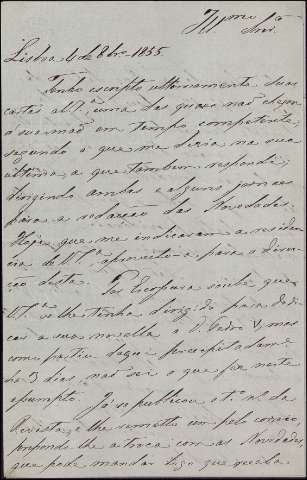 Illmo Snr.
Lisboa 4 de 8bro 1855.
Tenho escripto ultimamente duas
cartas a V. Sª, uma das quaes não chegou
á sua mão em tempo competente,
segundo o que me dizia na sua
ultima, a que tambem respondi;
dirigindo ambas e alguns jornaes
para a redacção das Novidades.
Hoje que me indicaram a residen
cia de V. Sª, aproveito-a para a direc
ção desta. Por
V. Sª se lhe tinha dirigido para dedi
car a sua novella a D. Pedro V, mas
como partiu daqui precipitadamen
ha 3 dias, não sei o que fez neste
assumpto. Já se publicou o 1º nº da
Revista, e lhe remetto um pelo correio,
propondo-lhe a troca com as Novidades,
que póde mandar logo que receba